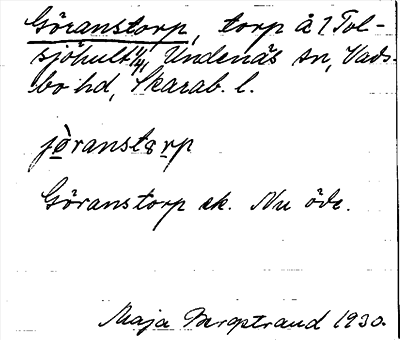 Göranstorp, torp å 1 Tol-
sjöhult 1/4, Undenäs sn, Vads-
bo hd, Skarab. l.
jö̀ranstɜrp
Göranstorp ek. Nu öde.
Maja Bergstrand 1930.